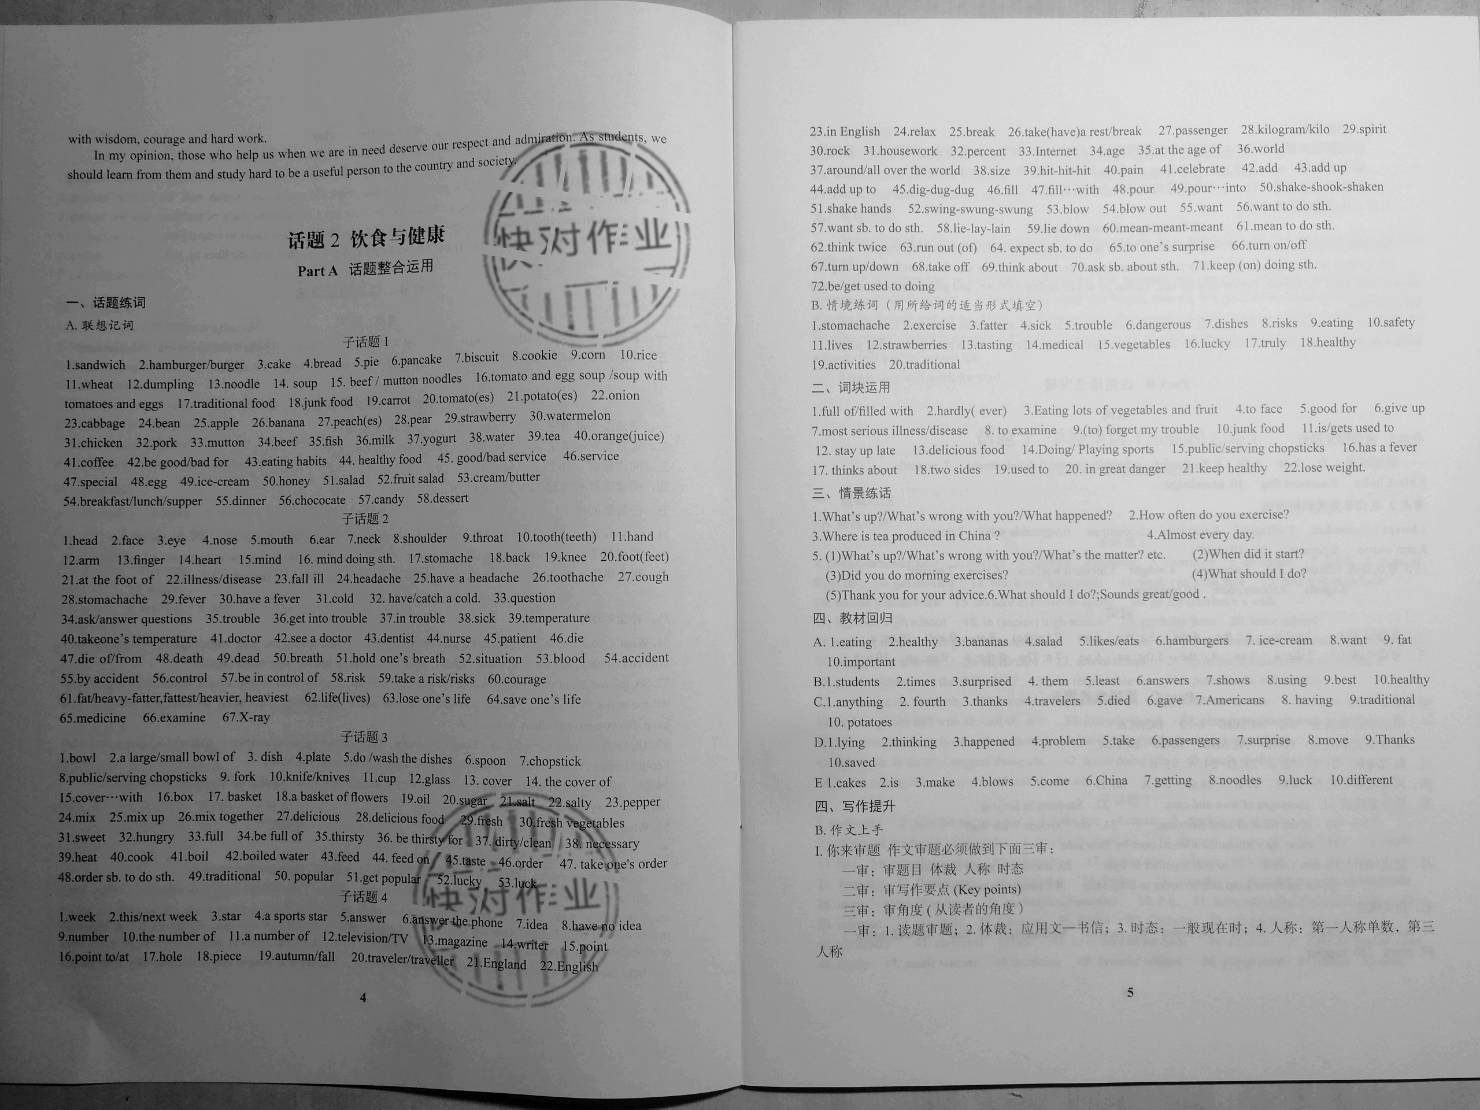 with wisdom, courage and hard work.
In my opinion, those who help us when we are in need deserve our respect and admiration. As students, we
should learn from them and study hard to be a useful person to the country and society.
话题 2 饮食与健康
Part A 话题整合运用
一、话题练词
A. 联想记词
子话题 1
1.sandwich 2.hamburger/burger 3.cake 4.bread 5.pie 6.pancake 7.biscuit 8.cookie 9.corn 10.rice
11.wheat 12.dumpling 13.noodle 14. soup 15. beef / mutton noodles 16.tomato and egg soup /soup with
tomatoes and eggs 17.traditional food 18.junk food 19.carrot 20.tomato(es) 21.potato(es) 22.onion
23.cabbage 24.bean 25.apple 26.banana 27.peach(es) 28.pear 29.strawberry 30.watermelon
31.chicken 32.pork 33.mutton 34.beef 35.fish 36.milk 37.yogurt 38.water 39.tea 40.orange(juice)
41.coffee 42.be good/bad for 43.eating habits 44. healthy food 45. good/bad service 46.service
47.special 48.egg 49.ice-cream 50.honey 51.salad 52.fruit salad 53.cream/butter
54.breakfast/lunch/supper 55.dinner 56.chococate 57.candy 58.dessert
子话题 2
1.head 2.face 3.eye 4.nose 5.mouth 6.ear 7.neck 8.shoulder 9.throat 10.tooth(teeth) 11.hand
12.arm 13.finger 14.heart 15.mind 16. mind doing sth. 17.stomache 18.back 19.knee 20.foot(feet)
21.at the foot of 22.illness/disease 23.fall ill 24.headache 25.have a headache 26.toothache 27.cough
28.stomachache 29.fever 30.have a fever 31.cold 32. have/catch a cold. 33.question
34.ask/answer questions 35.trouble 36.get into trouble 37.in trouble 38.sick 39.temperature
40.takeone's temperature 41.doctor 42.see a doctor 43.dentist 44.nurse 45.patient 46.die
47.die of/from 48.death 49.dead 50.breath 51.hold one's breath 52.situation 53.blood 54.accident
55.by accident 56.control 57.be in control of 58.risk 59.take a risk/risks 60.courage
61.fat/heavy-fatter,fattest/heavier, heaviest 62.life(lives) 63.lose one's life 64.save one's life
65.medicine 66.examine 67.X-ray
子话题 3
1.bowl 2.a large/small bowl of 3. dish 4.plate 5.do /wash the dishes 6.spoon 7.chopstick
8.public/serving chopsticks 9. fork 10.knife/knives 11.cup 12.glass 13. cover 14. the cover of
15.cover…with 16.box 17. basket 18.a basket of flowers 19.oil 20.sugar 21.salt 22.salty 23.pepper
24.mix 25.mix up 26.mix together 27.delicious 28.delicious food 29.fresh 30.fresh vegetables
31.sweet 32.hungry 33.full 34.be full of 35.thirsty 36. be thirsty for 37. dirty/clean 38. necessary
39.heat 40.cook 41.boil 42.boiled water 43.feed 44. feed on 45.taste 46.order 47. take one's order
48.order sb. to do sth. 49.traditional 50. popular 51.get popular 52.lucky 53.luck
子话题 4
1.week 2.this/next week 3.star 4.a sports star 5.answer 6.answer the phone 7.idea 8.have no idea
9.number 10.the number of 11.a number of 12.television/TV 13.magazine 14.writer 15.point
16.point to/at 17.hole 18.piece 19.autumn/fall 20.traveler/traveller 21.England 22.English
4
快对作业
快对作业
23.in English 24.relax 25.break 26.take(have)a rest/break 27.passenger 28.kilogram/kilo 29.spirit
30.rock 31.housework 32.percent 33.Internet 34.age 35.at the age of 36.world
37.around/all over the world 38.size 39.hit-hit-hit 40.pain 41.celebrate 42.add 43.add up
44.add up to 45.dig-dug-dug 46.fill 47.fill…with 48.pour 49.pour…into 50.shake-shook-shaken
51.shake hands 52.swing-swung-swung 53.blow 54.blow out 55.want 56.want to do sth.
57.want sb. to do sth. 58.lie-lay-lain 59.lie down 60.mean-meant-meant 61.mean to do sth.
62.think twice 63.run out (of) 64. expect sb. to do 65.to one's surprise 66.turn on/off
67.turn up/down 68.take off 69.think about 70.ask sb. about sth. 71.keep (on) doing sth.
72.be/get used to doing
B. 情境练词（用所给词的适当形式填空）
1.stomachache 2.exercise 3.fatter 4.sick 5.trouble 6.dangerous 7.dishes 8.risks 9.eating 10.safety
11.lives 12.strawberries 13.tasting 14.medical 15.vegetables 16.lucky 17.truly 18.healthy
19.activities 20.traditional
二、词块运用
1.full of/filled with 2.hardly( ever) 3.Eating lots of vegetables and fruit 4.to face 5.good for 6.give up
7.most serious illness/disease 8. to examine 9.(to) forget my trouble 10.junk food 11.is/gets used to
12. stay up late 13.delicious food 14.Doing/ Playing sports 15.public/serving chopsticks 16.has a fever
17. thinks about 18.two sides 19.used to 20. in great danger 21.keep healthy 22.lose weight.
三、情景练话
1.What's up?/What's wrong with you?/What happened? 2.How often do you exercise?
3.Where is tea produced in China ? 4.Almost every day.
5. (1)What's up?/What's wrong with you?/What's the matter? etc. (2)When did it start?
(3)Did you do morning exercises? (4)What should I do?
(5)Thank you for your advice.6.What should I do?;Sounds great/good .
四、教材回归
A. 1.eating 2.healthy 3.bananas 4.salad 5.likes/eats 6.hamburgers 7. ice-cream 8.want 9. fat
10.important
B.1.students 2.times 3.surprised 4. them 5.least 6.answers 7.shows 8.using 9.best 10.healthy
C.1.anything 2. fourth 3.thanks 4.travelers 5.died 6.gave 7.Americans 8. having 9.traditional
10. potatoes
D.1.lying 2.thinking 3.happened 4.problem 5.take 6.passengers 7.surprise 8.move 9.Thanks
10.saved
E 1.cakes 2.is 3.make 4.blows 5.come 6.China 7.getting 8.noodles 9.luck 10.different
四、写作提升
B. 作文上手
I. 你来审题 作文审题必须做到下面三审：
一审：审题目 体裁 人称 时态
二审：审写作要点 (Key points)
三审：审角度 ( 从读者的角度 )
一审：1. 读题审题；2. 体裁：应用文—书信；3. 时态：一般现在时；4. 人称：第一人称单数，第三
人称
5